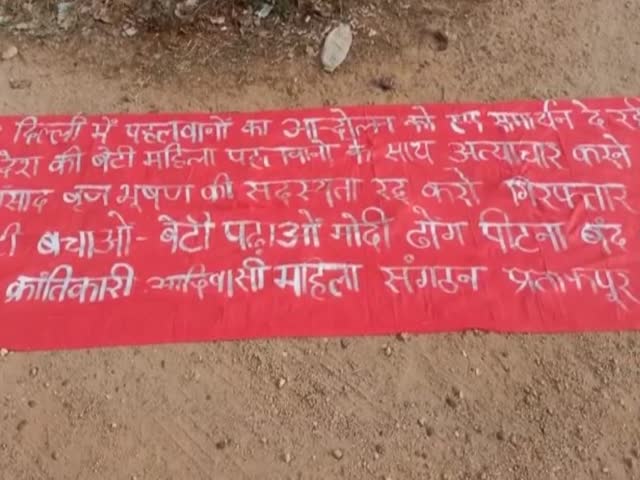 दिल्ली में पहलवानों का आन्दोलन को हम समर्थन दे रहे
देश की बेटी महिला पहलवानों के साथ अत्याचार करने
सांसद बृज भूषण की सदस्यता रद्द करो गिरफ्तार
बचाओं - बेटी पढ़ाओं मोदी ढोंग पीटना बंद
क्रांतिकारी आदिवासी महिला संगठन प्रतापपूर